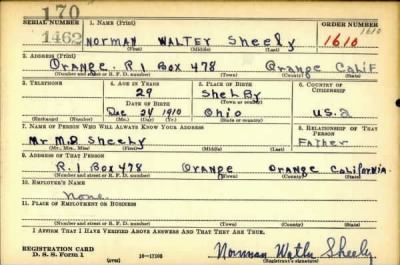 170
SERIAL NUMBER 1. NAME (Print) ORDER NUMBER
1610
1462 NORMAN WALTER Sheely 1610
(First) (Middle) (Last)
2. ADDRESS (Print)
ORANGE. R.1 Box 478 Orange Calif
(Number and street or R. F. D. number) (Town) (County) (State)
3. TELEPHONE 4. AGE IN YEARS 5. PLACE OF BIRTH 6. COUNTRY OF CITIZENSHIP
29 Shelby
DATE OF BIRTH (Town or county)
Dec 24 1910 Ohio U.S.A
(Exchange) (Number) (Mo.) (Day) (Yr.) (State or country)
7. NAME OF PERSON WHO WILL ALWAYS KNOW YOUR ADDRESS 8. RELATIONSHIP OF THAT PERSON
Mr M.D. Sheely Father
(Mr., Mrs., Miss) (First) (Middle) (Last)
9. ADDRESS OF THAT PERSON
R.1 Box 478 Orange Orange California
(Number and street or R. F. D. number) (Town) (County) (State)
10. EMPLOYER'S NAME
None
11. PLACE OF EMPLOYMENT OR BUSINESS
(Number and street or R. F. D. number) (Town) (County) (State)
I AFFIRM THAT I HAVE VERIFIED ABOVE ANSWERS AND THAT THEY ARE TRUE.
REGISTRATION CARD
D. S. S. Form 1 (over) 16-17105 Norman Walter Sheely
(Registrant's signature)